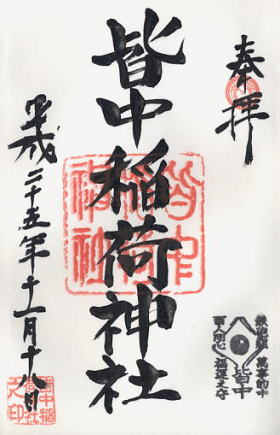 奉拝
皆中稲荷神社
平成二十五年十一月十八日
皆中稲荷神社
皆中